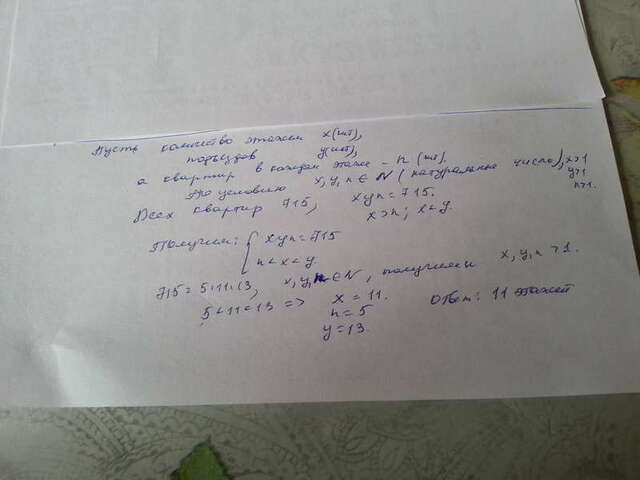 Пусть количество этажей x (шт),
подъездов y (шт),
а квартир в каждом этаже - n (шт).
По условию x, y, n ∈ N (натуральные числа), x>1
y>1
n>1.
Всех квартир 715, xyn = 715.
x > n; x < y.
Получим: { xyn = 715
n < x < y.
715 = 5·11·13, x, y, n ∈ N, получаем x, y, n > 1.
5 < 11 < 13 => x = 11. Ответ: 11 этажей
n = 5
y = 13.